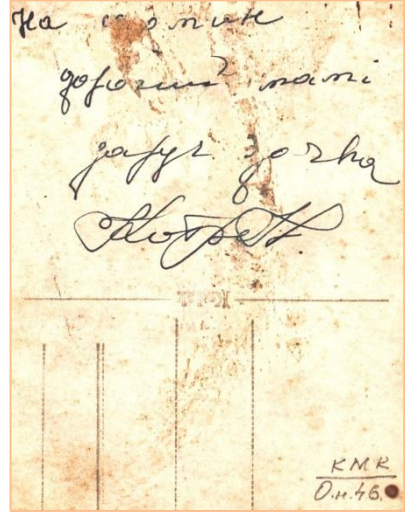 На спомин
дорогій мамі
дарує дочка
КМК
О.н.46.